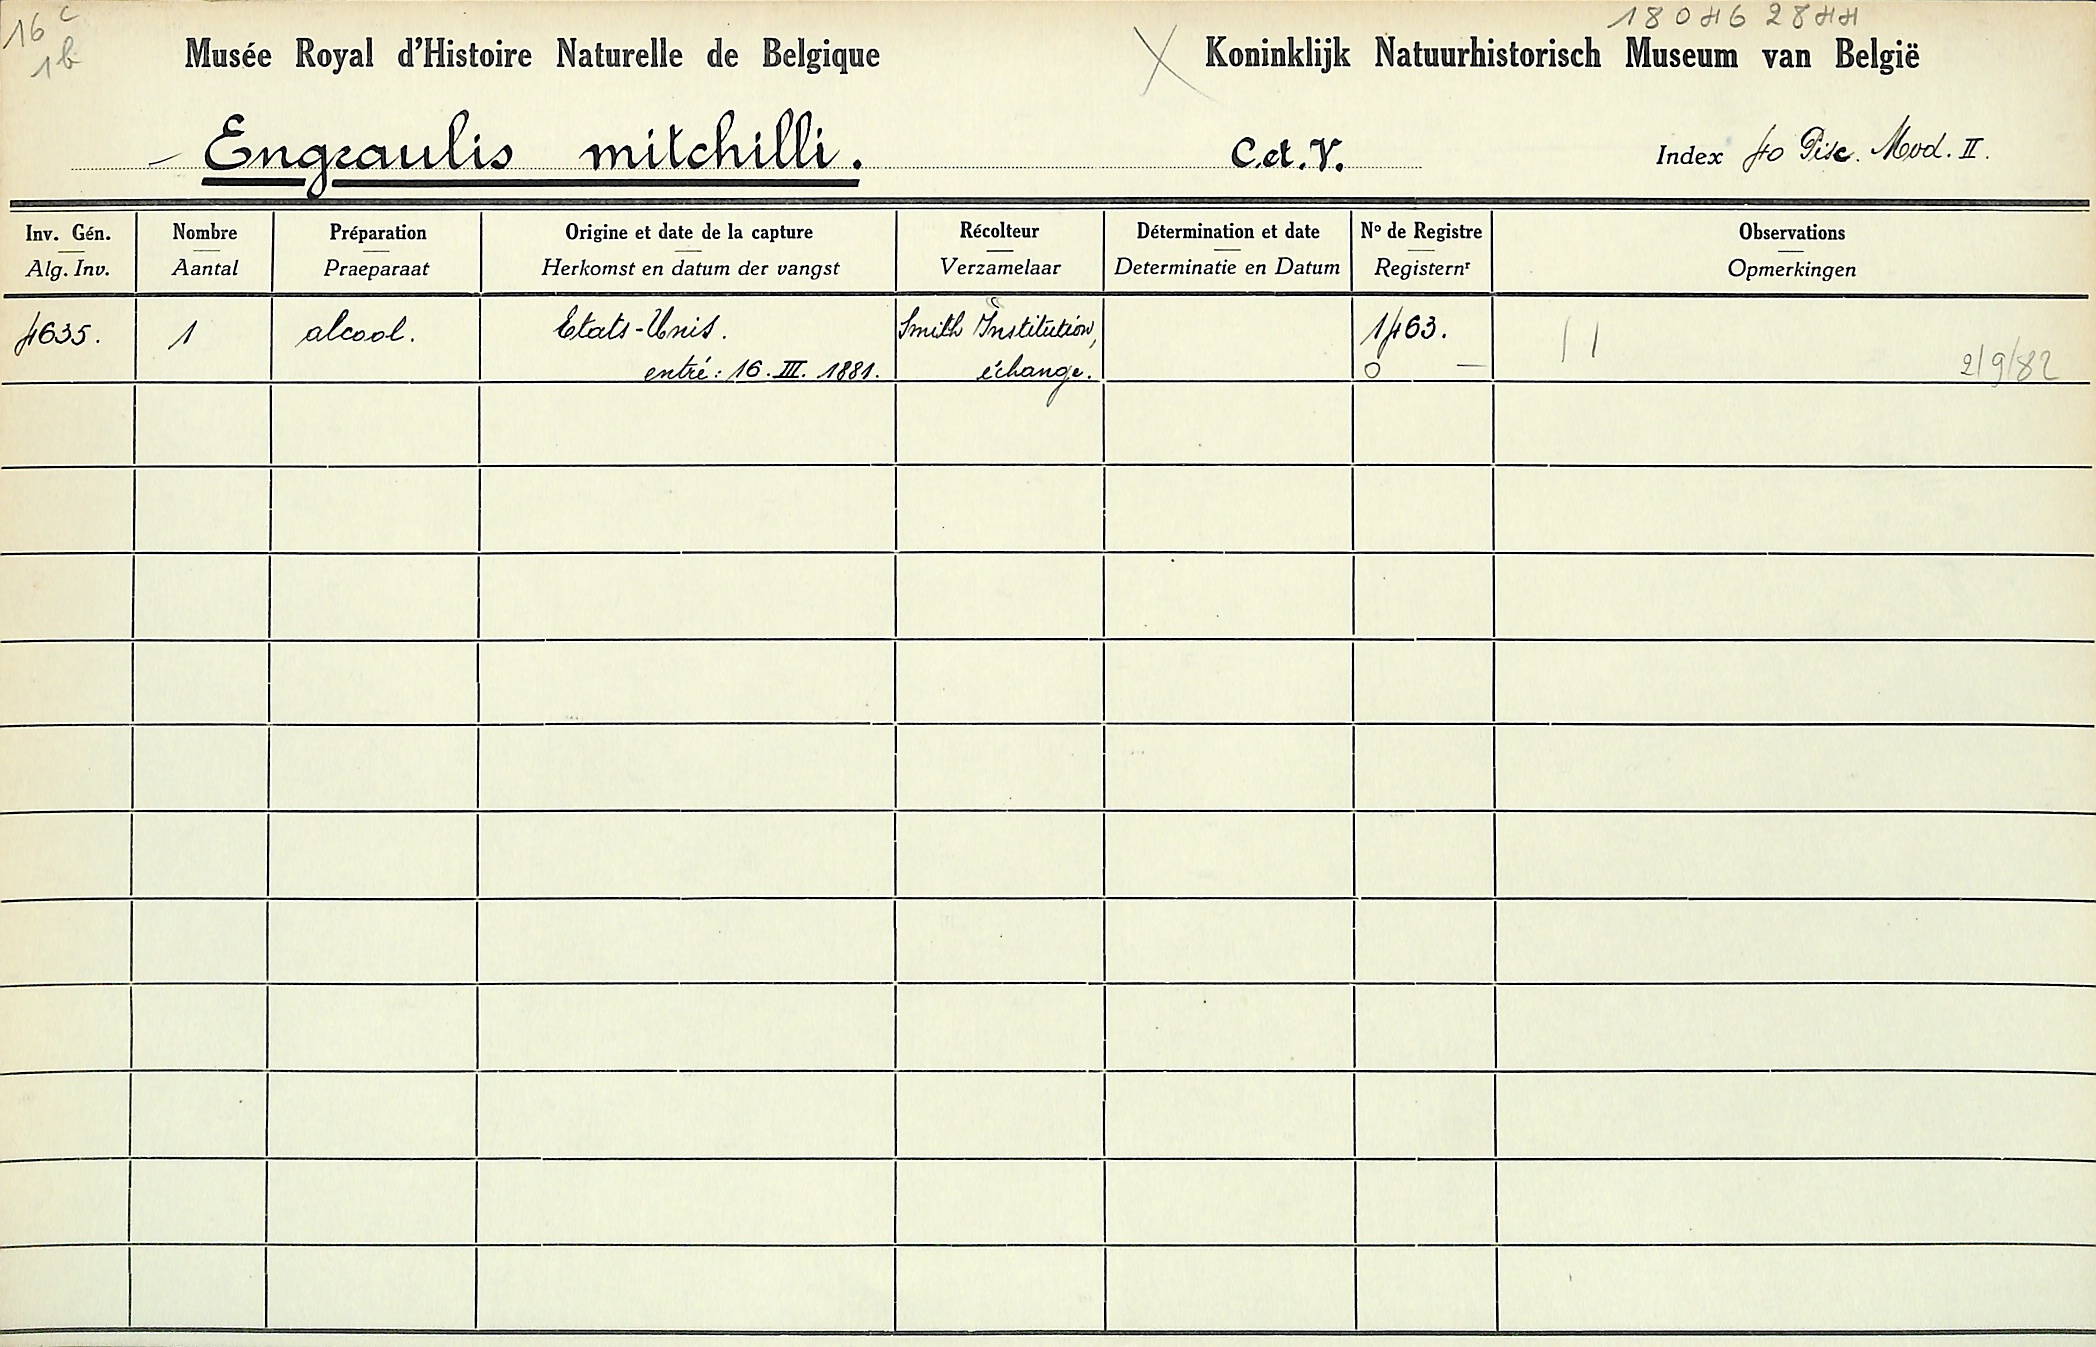 16 c
1b
180462844
Musée Royal d'Histoire Naturelle de Belgique
Koninklijk Natuurhistorisch Museum van België
Engraulis mitchilli.
C. et. V.
Index 40 Pisc. Mod. II.
Inv. Gén.
Alg. Inv.
Nombre
Aantal
Préparation
Praeparaat
Origine et date de la capture
Herkomst en datum der vangst
Récolteur
Verzamelaar
Détermination et date
Determinatie en Datum
Nº de Registre
Registernʳ
Observations
Opmerkingen
4635.
1
alcool.
Etats-Unis.
entré: 16. III. 1881.
Smith Institution,
échange.
1463.
o —
2/9/82